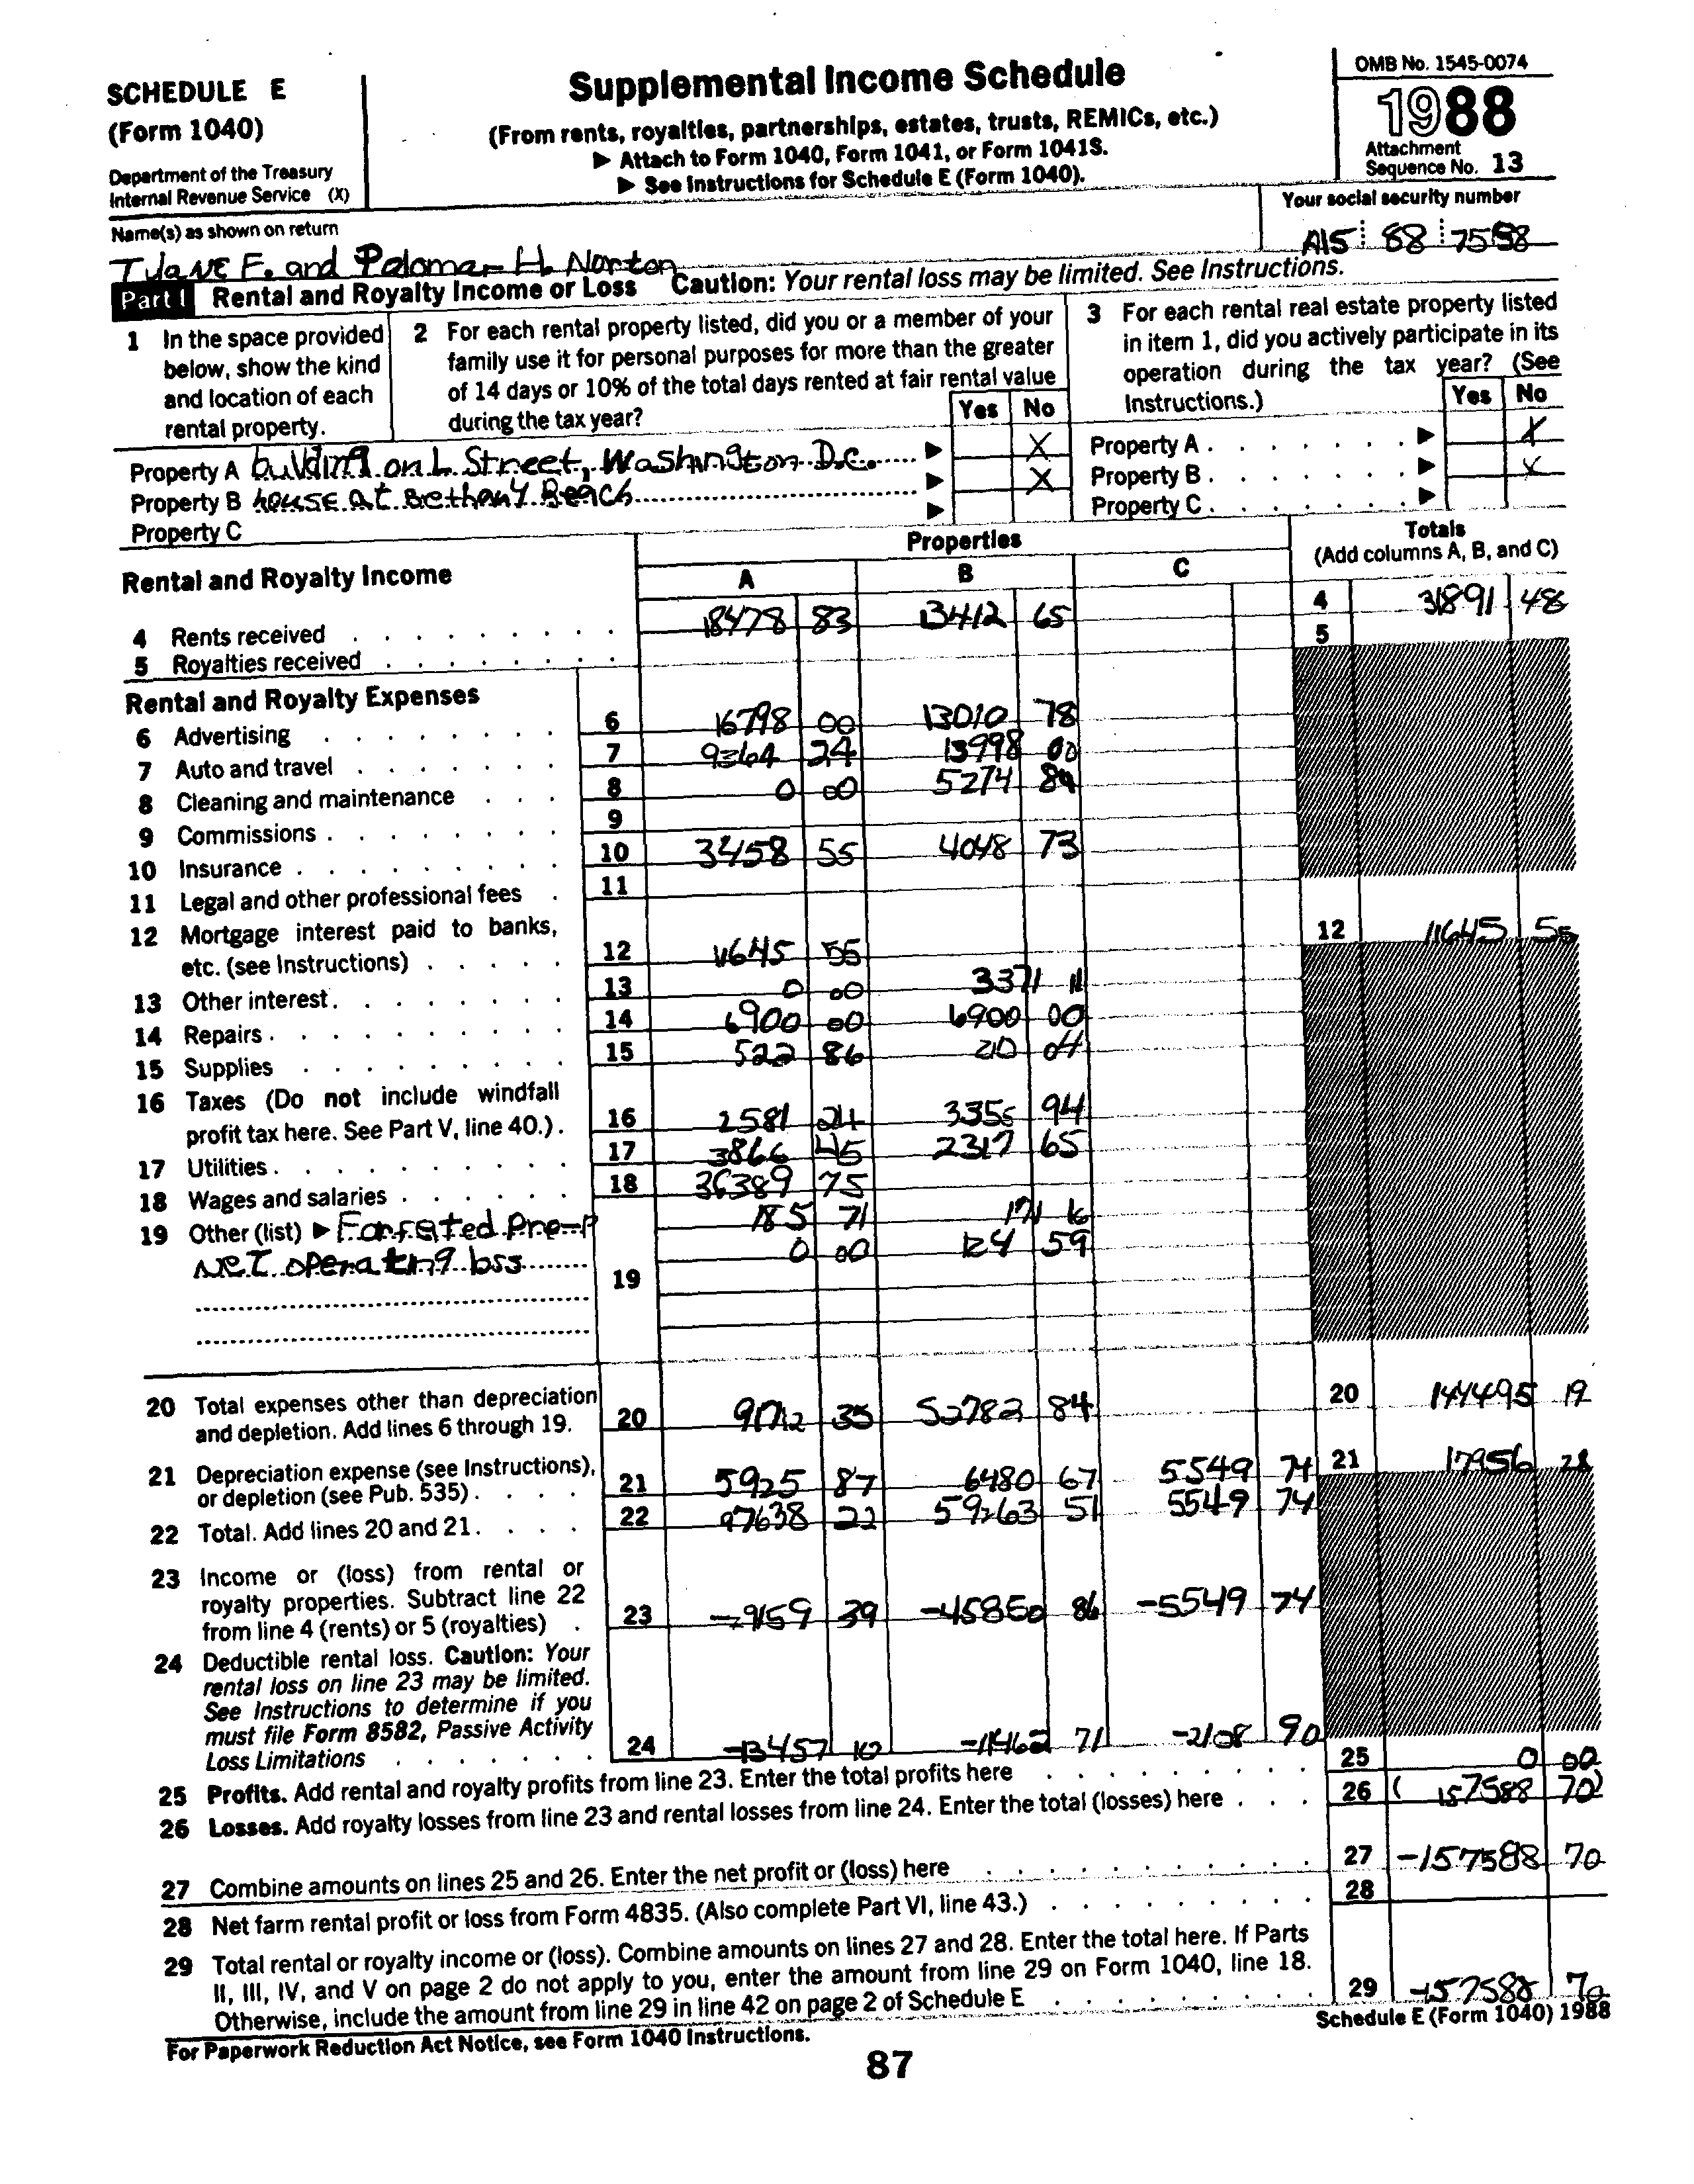 SCHEDULE E
(Form 1040)
Department of the Treasury
Internal Revenue Service (X)
Supplemental Income Schedule
(From rents, royalties, partnerships, estates, trusts, REMICs, etc.)
▶ Attach to Form 1040, Form 1041, or Form 1041S.
▶ See Instructions for Schedule E (Form 1040).
OMB No. 1545-0074
1988
Attachment
Sequence No. 13
Name(s) as shown on return
F. and Paloma H. Norton
Your social security number
88 75
Part I Rental and Royalty Income or Loss Caution: Your rental loss may be limited. See Instructions.
1 In the space provided
below, show the kind
and location of each
rental property.
2 For each rental property listed, did you or a member of your
family use it for personal purposes for more than the greater
of 14 days or 10% of the total days rented at fair rental value
during the tax year?
Yes No
3 For each rental real estate property listed
in item 1, did you actively participate in its
operation during the tax year? (See
Instructions.)
Yes No
Property A building on L Street, Washington D.C. ▶ X
Property B house at Bethany Beach ▶ X
Property C ▶
Property A ▶ X
Property B ▶ X
Property C ▶
Rental and Royalty Income
Properties
A B C
Totals
(Add columns A, B, and C)
4 Rents received 18478 83 13412 65 4 31891 48
5 Royalties received 5
Rental and Royalty Expenses
6 Advertising 6 16798 00 13010 78
7 Auto and travel 7 9364 24 13998 00
8 Cleaning and maintenance 8 0 00 5274 84
9 Commissions 9
10 Insurance 10 3458 55 4048 73
11 Legal and other professional fees 11
12 Mortgage interest paid to banks,
etc. (see Instructions) 12 11645 55 12 11645 55
13 Other interest 13 0 00 3371 11
14 Repairs 14 6900 00 6900 00
15 Supplies 15 522 86 210 04
16 Taxes (Do not include windfall
profit tax here. See Part V, line 40.) 16 2581 24 94
17 Utilities 17 3866 45 2317 65
18 Wages and salaries 18 36389 75
19 Other (list) ▶ 185 71 171 16
Net operating loss 0 00 124 59
19
20 Total expenses other than depreciation
and depletion. Add lines 6 through 19. 20 91712 35 52782 84 20 144495 19
21 Depreciation expense (see Instructions),
or depletion (see Pub. 535) 21 5925 87 6480 67 5549 74 21 17956 28
22 Total. Add lines 20 and 21. 22 97638 22 59263 51 5549 74
23 Income or (loss) from rental or
royalty properties. Subtract line 22
from line 4 (rents) or 5 (royalties) 23 -79159 39 -45850 86 -5549 74
24 Deductible rental loss. Caution: Your
rental loss on line 23 may be limited.
See Instructions to determine if you
must file Form 8582, Passive Activity
Loss Limitations 24 -13457 10 -11462 71 -2108 90
25 Profits. Add rental and royalty profits from line 23. Enter the total profits here 25 0 00
26 Losses. Add royalty losses from line 23 and rental losses from line 24. Enter the total (losses) here 26 ( 157588 70)
27 Combine amounts on lines 25 and 26. Enter the net profit or (loss) here 27 -157588 70
28 Net farm rental profit or loss from Form 4835. (Also complete Part VI, line 43.) 28
29 Total rental or royalty income or (loss). Combine amounts on lines 27 and 28. Enter the total here. If Parts
II, III, IV, and V on page 2 do not apply to you, enter the amount from line 29 on Form 1040, line 18.
Otherwise, include the amount from line 29 in line 42 on page 2 of Schedule E 29 -157588 70
For Paperwork Reduction Act Notice, see Form 1040 Instructions.
Schedule E (Form 1040) 1988
87